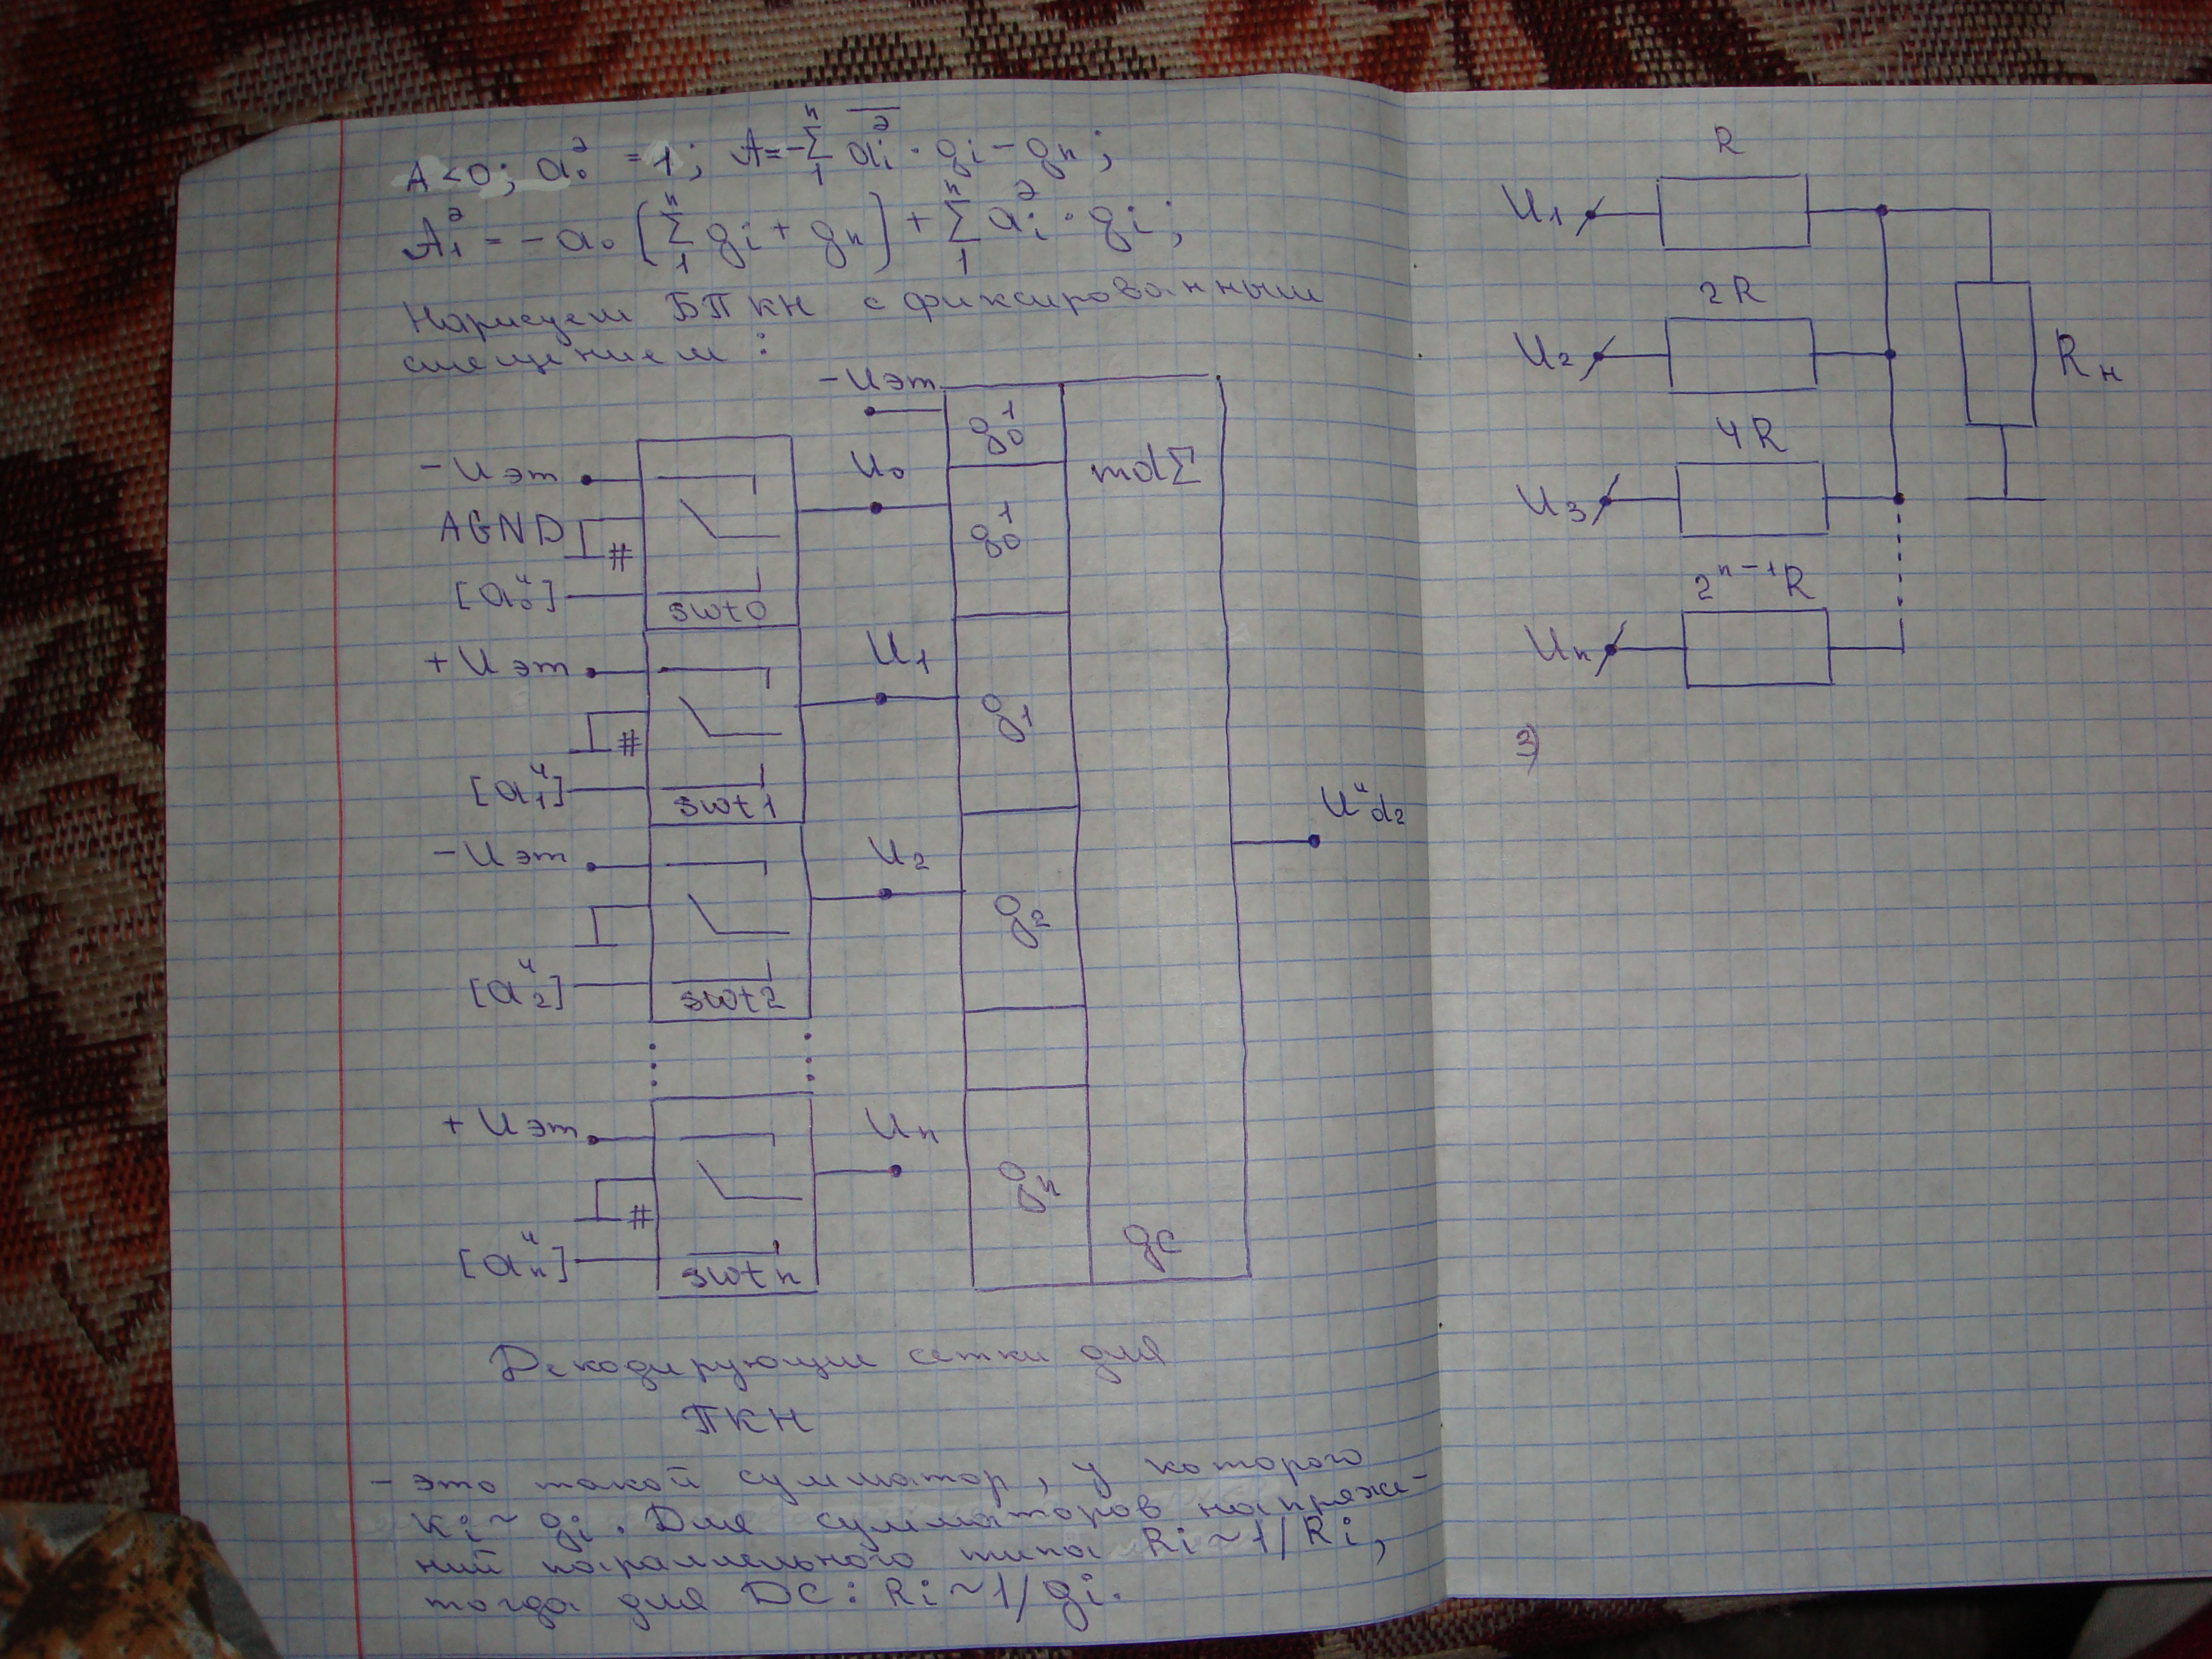 A<0; a₀² = 1; A = -∑₁ⁿ a̅ᵢ̅² · qᵢ - qₙ;
A₁² = -a₀ [∑₁ⁿ qᵢ + qₙ] + ∑₁ⁿ aᵢ² · qᵢ;
Нарисуем БПКН с фиксированным
смещением:
-Uэт
q₀¹
-Uэт
U₀
md∑
AGND
#
q₀¹
[a₀ⁿ]
swt0
+Uэт
U₁
q₁
#
[a₁ⁿ]
swt1
Uⁿd₂
-Uэт
U₂
q₂
[a₂ⁿ]
swt2
+Uэт
Uₙ
qₙ
#
qc
[aₙⁿ]
swtn
Декодирующие сетки для
ПКН
- это такой сумматор, у которого
Ki ~ qi. Для сумматоров напряже-
ний параллельного типа Ri ~ 1/Ri,
тогда для ДС: Ri ~ 1/qi.
R
U₁
2R
U₂
Rн
4R
U₃
2ⁿ⁻¹R
Uₙ
3)